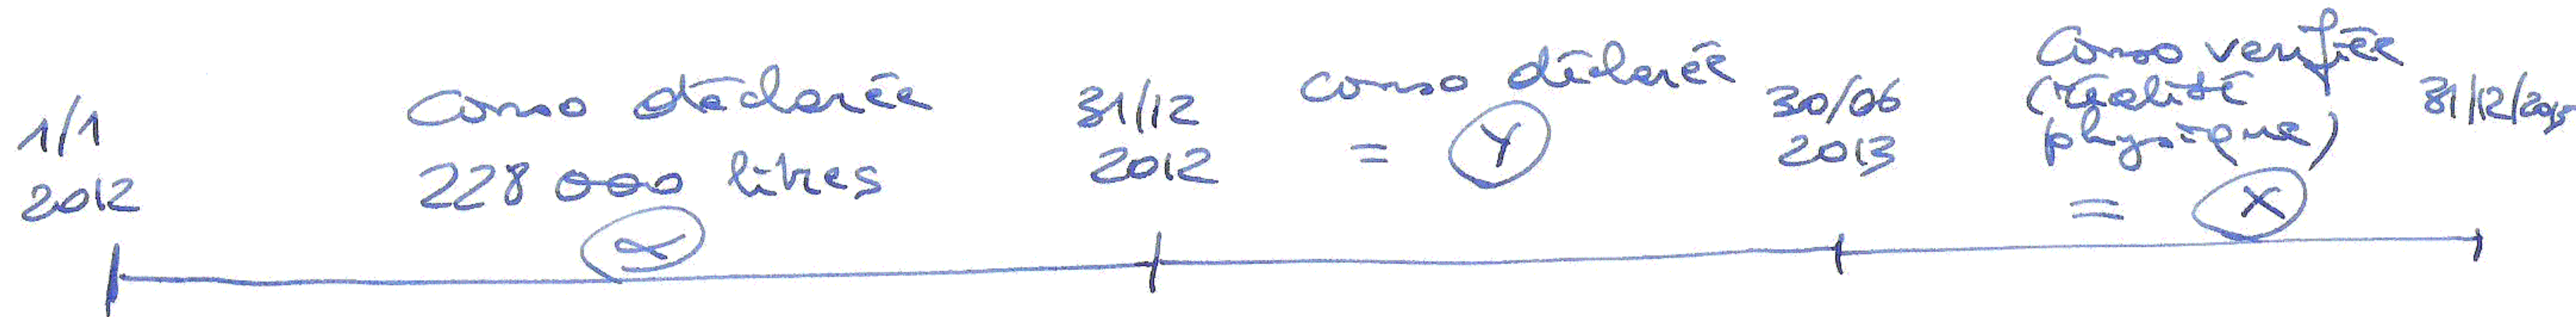 1/1
2012
conso déclarée
228 000 litres
α
31/12
2012
conso déclarée
= Y
30/06
2013
conso verifiée
(réalité
physique)
= X
31/12/2013